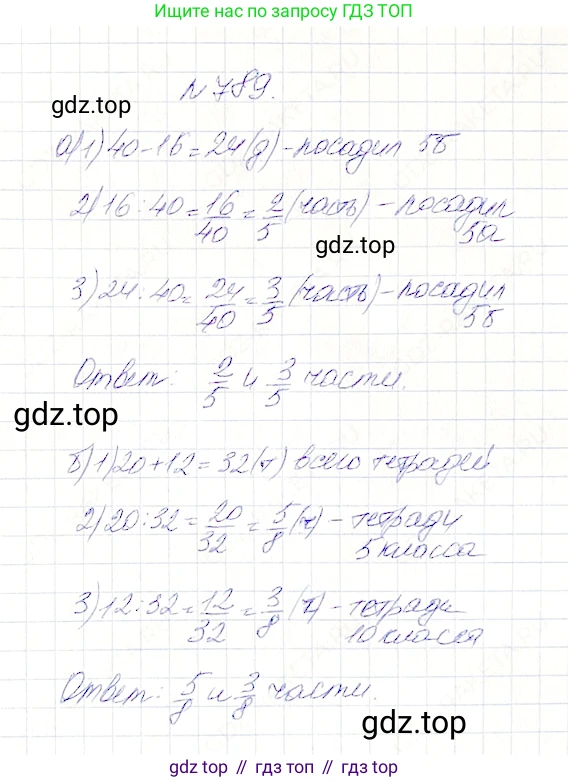 Ищите нас по запросу ГДЗ ТОП
№ 789.
gdz.top
а) 1) 40-16=24(д) - посадил 5б
2) 16:40 = 16/40 = 2/5 (часть) - посадил
5а
gdz.top
3) 24:40 = 24/40 = 3/5 (часть) - посадил
5б
Ответ: 2/5 и 3/5 части.
gdz.top
б) 1) 20+12 = 32(т) всего тетрадей
2) 20:32 = 20/32 = 5/8 (т) - тетради
5 класса
3) 12:32 = 12/32 = 3/8 (т) - тетради
10 класса
Ответ: 5/8 и 3/8 части.
gdz.top
gdz.top // гдз топ // гдз.топ